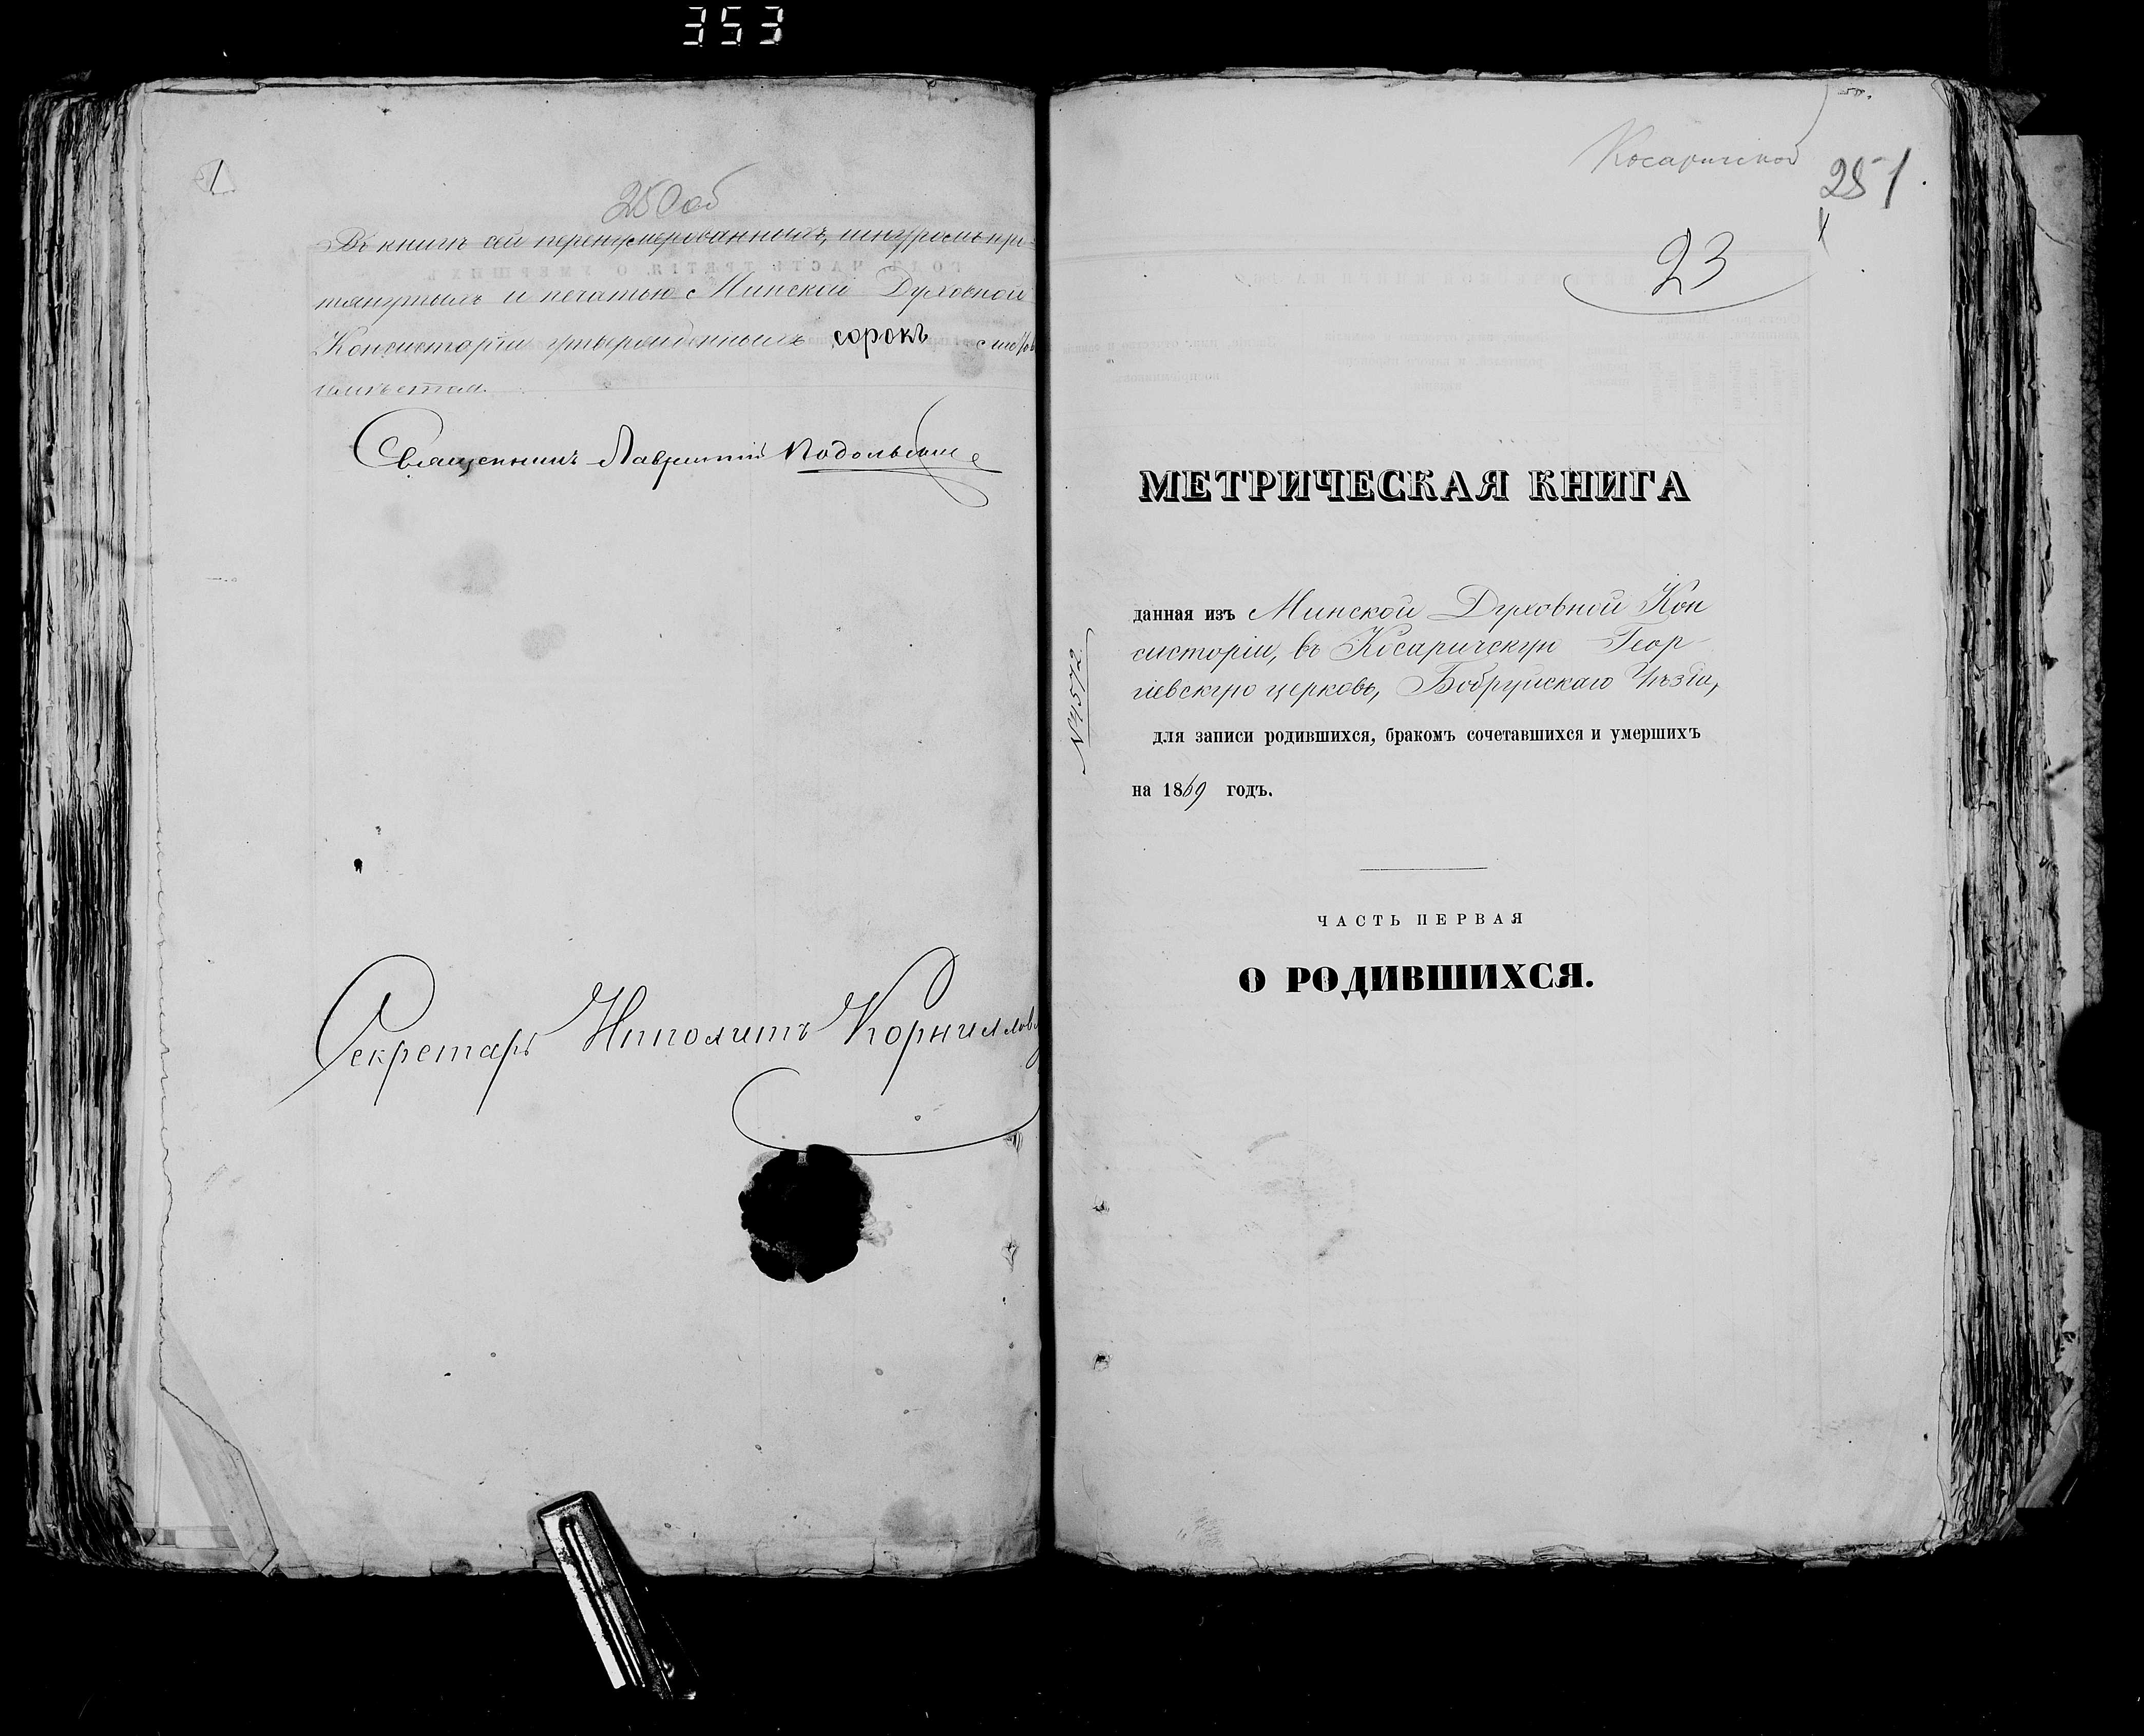 353
250 об
Въ книгѣ сей перенумерованныхъ, шнуромъ про-
тянутыхъ и печатью Минской Духовной
Консисторіи утвержденныхъ сорокъ листовъ
Священникъ Лаврентій Подольскій
Секретарь Ипполитъ Корнилло
Косаричской
251
23
МЕТРИЧЕСКАЯ КНИГА
данная изъ Минской Духовной Кон
систоріи, въ Косаричскую Геор
гіевскую церковь, Бобруйскаго Уѣзда,
для записи родившихся, бракомъ сочетавшихся и умершихъ
на 1869 годъ.
№ 4572
ЧАСТЬ ПЕРВАЯ
О РОДИВШИХСЯ.